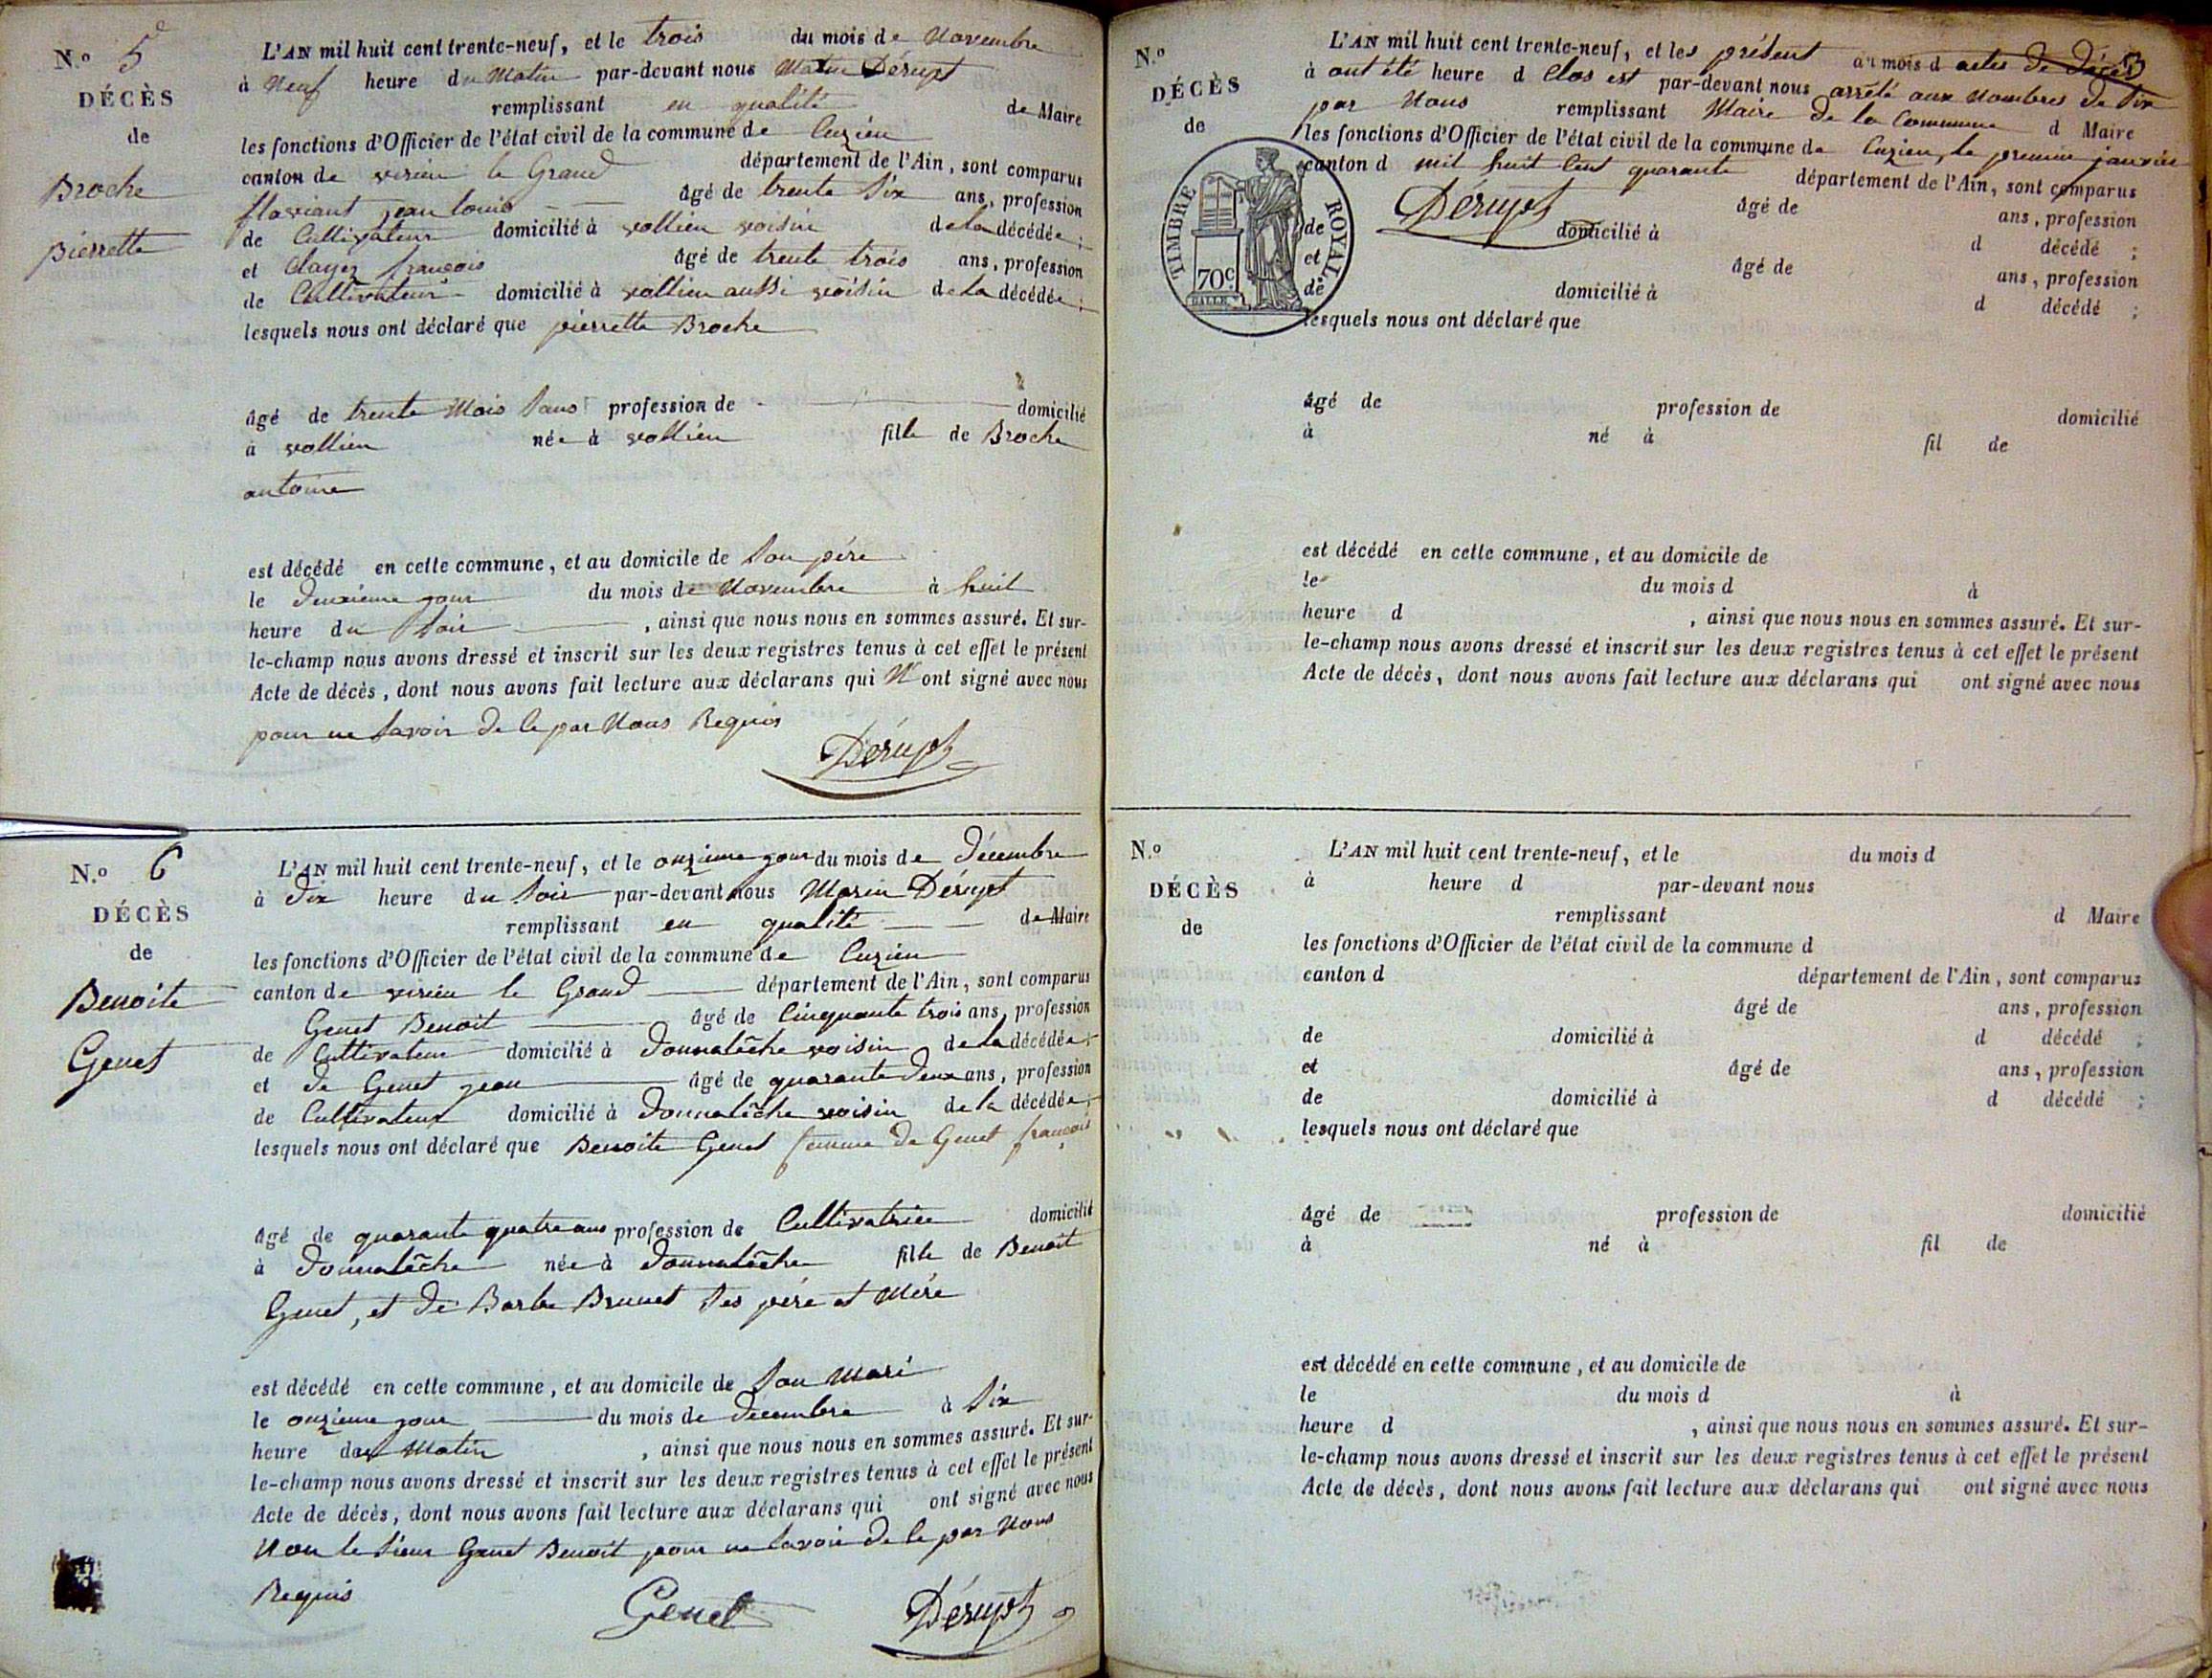 N.º 5e
DÉCÈS
de
Broche
pierrette
L'AN mil huit cent trente-neuf, et le trois du mois de Novembre
à Neuf heure du Matin par-devant nous Marin Dérupt
remplissant en qualité de Maire
les fonctions d'Officier de l'état civil de la commune de Cuzieu
canton de virieu le Grand département de l'Ain, sont comparus
flaviant jean louis âgé de trente Six ans, profession
de Cultivateur domicilié à vollien voisin de la décédée;
et Clayez françois âgé de trente trois ans, profession
de Cultivateur domicilié à vollien aussi voisin de la décédée;
lesquels nous ont déclaré que pierrette Broche
âgé de trente Mois Sans profession de domicilié
à vollien née à vollien fille de Broche
antoine
est décédé en cette commune, et au domicile de Son père
le deuxieme jour du mois de Novembre à huit
heure du Soir, ainsi que nous nous en sommes assuré. Et sur-
le-champ nous avons dressé et inscrit sur les deux registres tenus à cet effet le présent
Acte de décès, dont nous avons fait lecture aux déclarans qui N' ont signé avec nous
pour ne Savoir de Ce par Nous Requis
Dérupt
N.º 6
DÉCÈS
de
Benoite
Genet
L'AN mil huit cent trente-neuf, et le onzieme jour du mois de Décembre
à Dix heure du Soir par-devant nous Marin Dérupt
remplissant en qualité de Maire
les fonctions d'Officier de l'état civil de la commune de Cuzieu
canton de virieu le Grand département de l'Ain, sont comparus
Genet Benoit âgé de Cinquante trois ans, profession
de Cultivateur domicilié à Donnalèche voisin de la décédée;
et de Genet jean âgé de quarante Deux ans, profession
de Cultivateur domicilié à Donnalèche voisin de la décédée;
lesquels nous ont déclaré que Benoite Genet femme de Genet françois
âgé de quarante quatre ans profession de Cultivatrice domicilié
à Donnalèche née à Donnalèche fille de Benoit
Genet, et de Barbe Brunet Ses père et Mère
est décédé en cette commune, et au domicile de Son Mari
le onzieme jour du mois de Decembre à Six
heure du Matin, ainsi que nous nous en sommes assuré. Et sur-
le-champ nous avons dressé et inscrit sur les deux registres tenus à cet effet le présent
Acte de décès, dont nous avons fait lecture aux déclarans qui ont signé avec nous
Non le Sieur Genet Benoit pour ne Savoir de Ce par Nous
Requis
Genet Dérupt
N.º
DÉCÈS
de
L'AN mil huit cent trente-neuf, et les présent du mois d actes de Décès
à ont été heure d Clos est par-devant nous arrêté aux Nombres de Six
par Nous remplissant Maire de la Commune d Maire
les fonctions d'Officier de l'état civil de la commune de Cuzieu, le premier janvier
canton d mil huit Cent quarante département de l'Ain, sont comparus
Dérupt
âgé de ans, profession
de domicilié à d décédé ;
et âgé de ans, profession
de domicilié à d décédé ;
lesquels nous ont déclaré que
TIMBRE ROYAL
70c
DALLE.
âgé de profession de domicilié
à né à fil de
est décédé en cette commune, et au domicile de
le du mois d à
heure d , ainsi que nous nous en sommes assuré. Et sur-
le-champ nous avons dressé et inscrit sur les deux registres tenus à cet effet le présent
Acte de décès, dont nous avons fait lecture aux déclarans qui ont signé avec nous
N.º
DÉCÈS
de
L'AN mil huit cent trente-neuf, et le du mois d
à heure d par-devant nous
remplissant d Maire
les fonctions d'Officier de l'état civil de la commune d
canton d département de l'Ain, sont comparus
âgé de ans, profession
de domicilié à d décédé ;
et âgé de ans, profession
de domicilié à d décédé ;
lesquels nous ont déclaré que
âgé de profession de domicilié
à né à fil de
est décédé en cette commune, et au domicile de
le du mois d à
heure d , ainsi que nous nous en sommes assuré. Et sur-
le-champ nous avons dressé et inscrit sur les deux registres tenus à cet effet le présent
Acte de décès, dont nous avons fait lecture aux déclarans qui ont signé avec nous